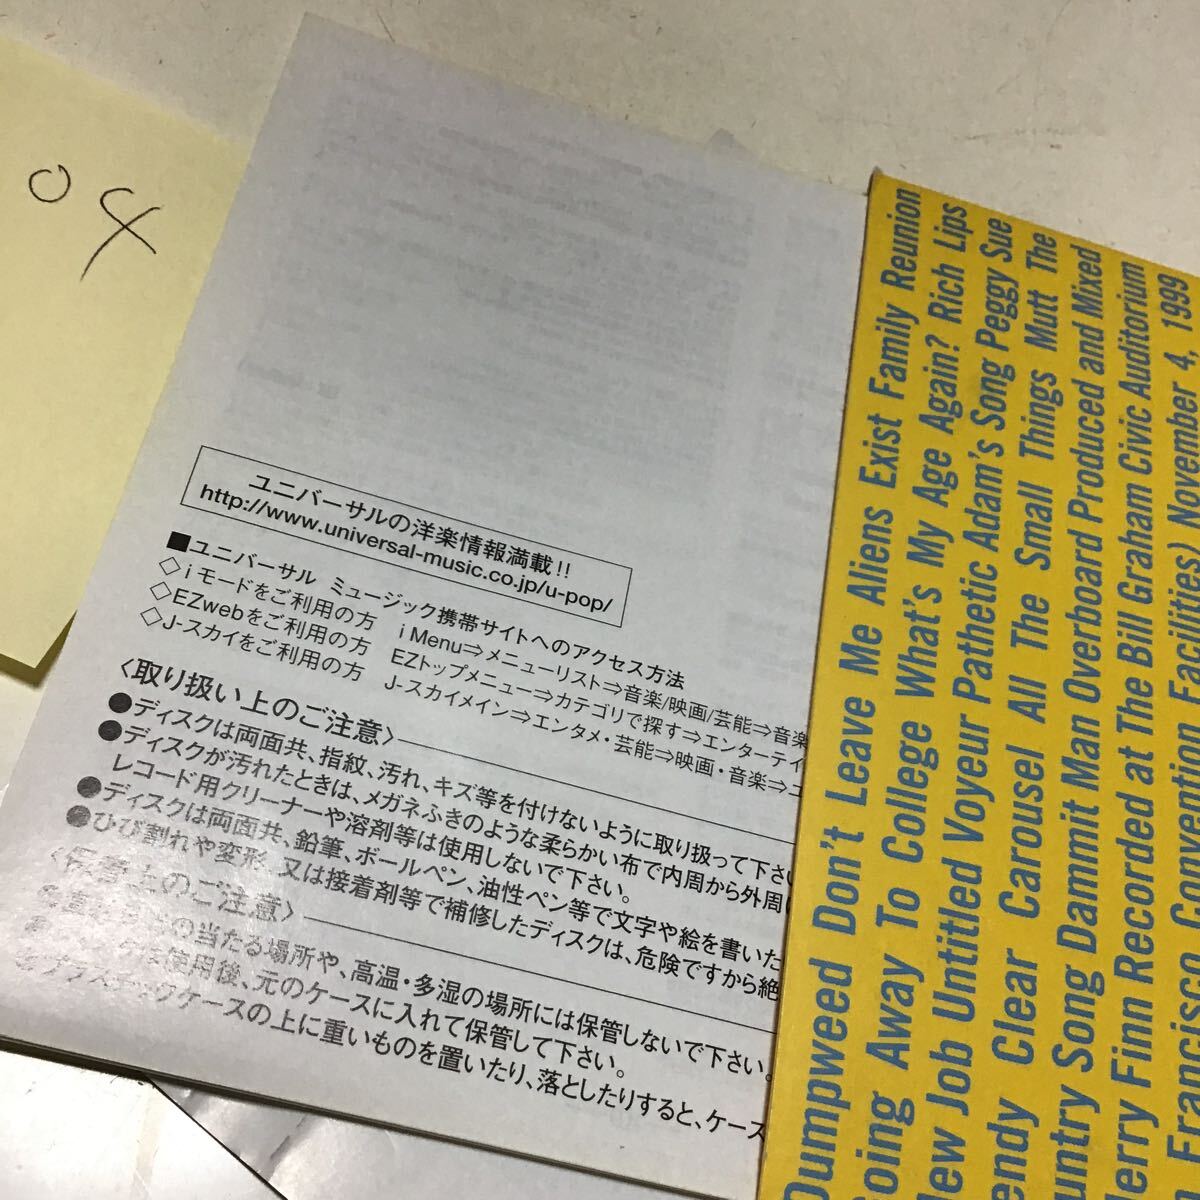 04
ユニバーサルの洋楽情報満載!!
http://www.universal-music.co.jp/u-pop/
■ユニバーサル ミュージック携帯サイトへのアクセス方法
◇iモードをご利用の方 i Menu⇒メニューリスト⇒音楽/映画/芸能⇒音楽
◇EZwebをご利用の方 EZトップメニュー⇒カテゴリで探す⇒エンターテイ
◇J-スカイをご利用の方 J-スカイメイン⇒エンタメ・芸能⇒映画・音楽⇒ユ
〈取り扱い上のご注意〉
●ディスクは両面共、指紋、汚れ、キズ等を付けないように取り扱って下さい
●ディスクが汚れたときは、メガネふきのような柔らかい布で内周から外周に
レコード用クリーナーや溶剤等は使用しないで下さい。
●ディスクは両面共、鉛筆、ボールペン、油性ペン等で文字や絵を書いた
●ひび割れや変形、又は接着剤等で補修したディスクは、危険ですから絶
〈保管上のご注意〉
の当たる場所や、高温・多湿の場所には保管しないで下さい。
使用後、元のケースに入れて保管して下さい。
プラスチックケースの上に重いものを置いたり、落としたりすると、ケース
Dumpweed Don't Leave Me Aliens Exist Family Reunion
Going Away To College What's My Age Again? Rich Lips
New Job Untitled Voyeur Pathetic Adam's Song Peggy Sue
endy Clear Carousel All The Small Things Mutt The
untry Song Dammit Man Overboard Produced and Mixed
erry Finn Recorded at The Bill Graham Civic Auditorium
Francisco Convention Facilities) November 4, 1999